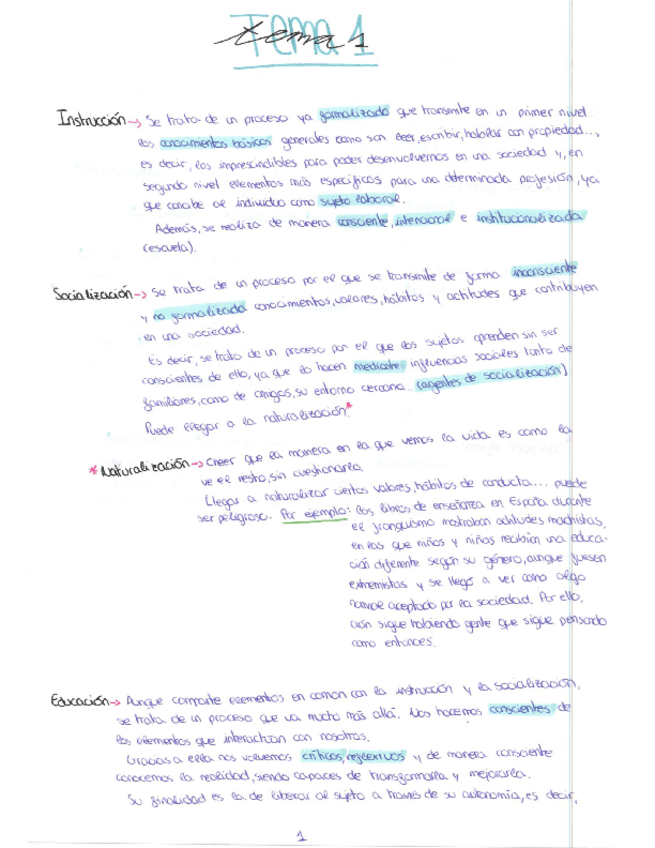 Tema 1
Instrucción → Se trata de un proceso ya formalizado que transmite en un primer nivel
los conocimientos básicos generales como son leer, escribir, hablar con propiedad...,
es decir, los imprescindibles para poder desenvolvernos en una sociedad y, en
segundo nivel elementos más específicos para una determinada profesión, ya
que concibe al individuo como sujeto laboral.
Además, se realiza de manera consciente, intencional e institucionalizada
(escuela).
Socialización → Se trata de un proceso por el que se transmite de forma inconsciente
y no formalizada conocimientos, valores, hábitos y actitudes que contribuyen
en una sociedad.
Es decir, se trata de un proceso por el que los sujetos aprenden sin ser
conscientes de ello, ya que lo hacen mediante influencias sociales tanto de
familiares, como de amigos, su entorno cercano... (agentes de socialización)
Puede llegar a la naturalización.*
*Naturalización → Creer que la manera en la que vemos la vida es como la
ve el resto, sin cuestionarla.
Llegar a naturalizar ciertos valores, hábitos de conducta... puede
ser peligroso. Por ejemplo: los libros de enseñanza en España durante
el franquismo mostraban actitudes machistas,
en las que niños y niñas recibían una educa-
ción diferente según su género, aunque fuesen
extremistas y se llegó a ver como algo
normal aceptado por la sociedad. Por ello,
aún sigue habiendo gente que sigue pensando
como entonces.
Educación → Aunque comparte elementos en común con la instrucción y la socialización,
se trata de un proceso que va mucho más allá. Nos hacemos conscientes de
los elementos que interactúan con nosotros.
Gracias a ella nos volvemos críticos, reflexivos y de manera consciente
conocemos la realidad, siendo capaces de transformarla y mejorarla.
Su finalidad es la de liberar al sujeto a través de su autonomía, es decir,
1